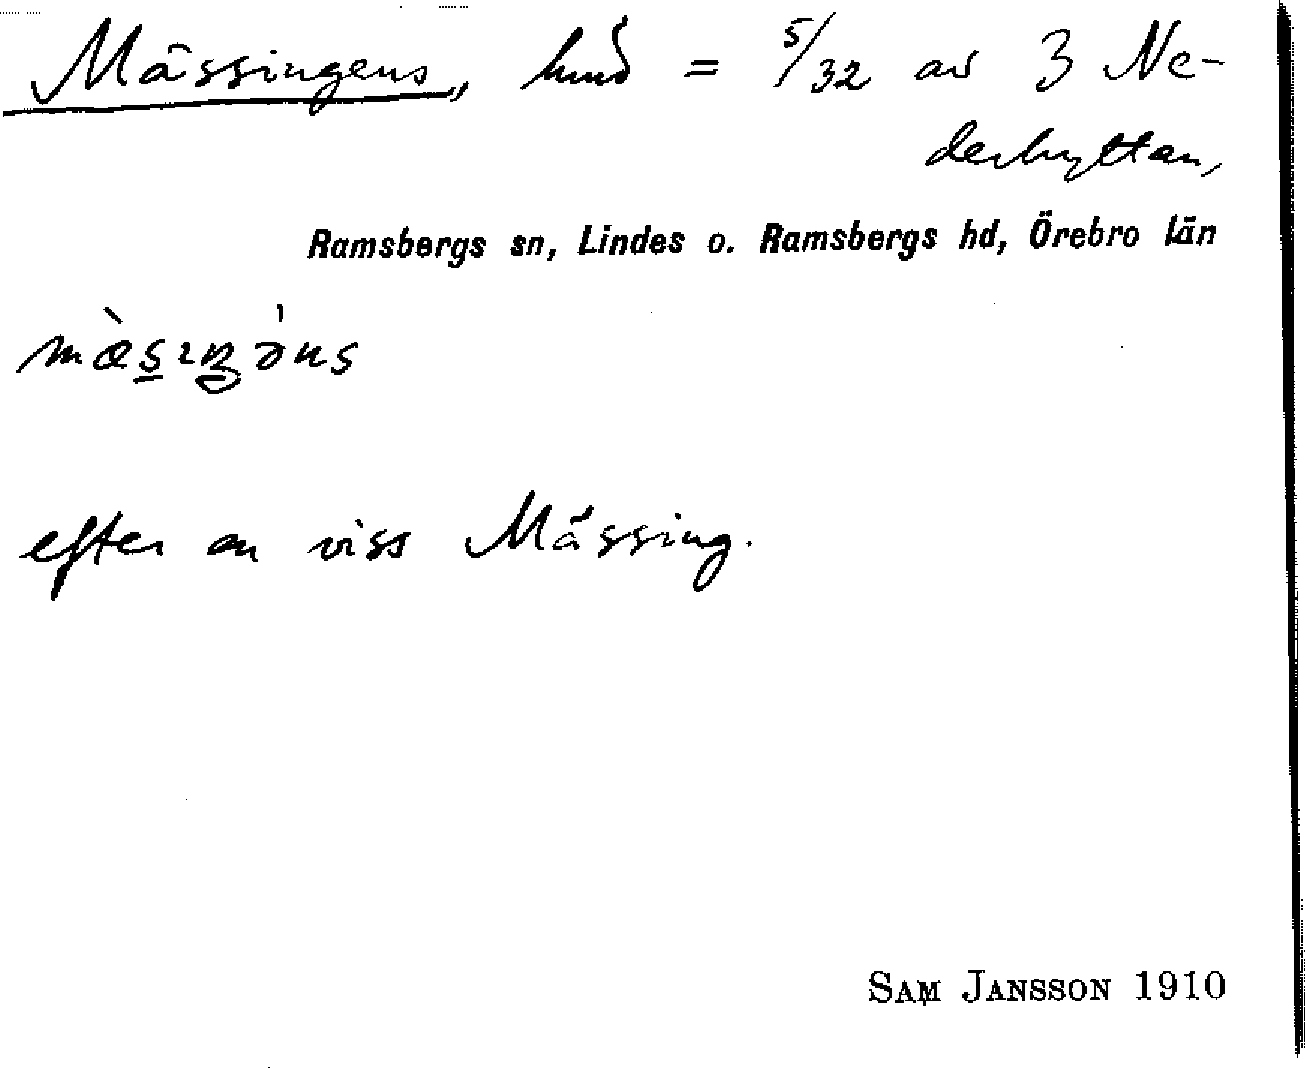 Mässingens, hmd = 5/32 av 3 Ne-
derhyttan,
Ramsbergs sn, Lindes o. Ramsbergs hd, Örebro län
efter en viss Mässing.
SAM JANSSON 1910